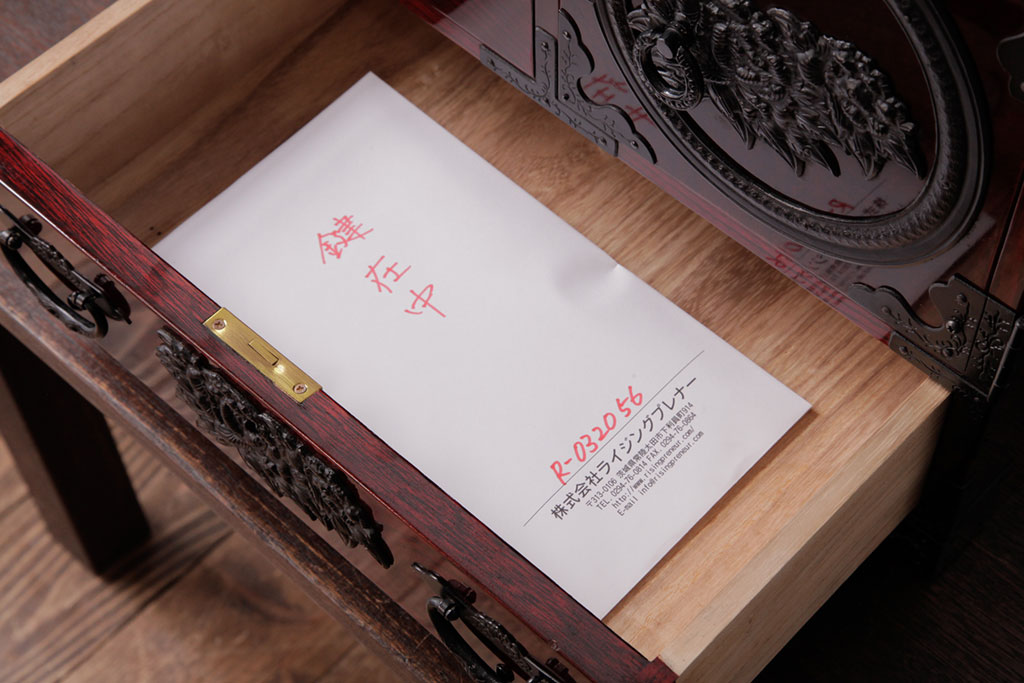 鍵在中
R-032056
株式会社ライジングプレナー
〒313-0106 茨城県常陸太田市下利員町914
TEL. 0294-76-0814 FAX. 0294-76-0864
http://www.risingpreneur.com/
E-mail info@risingpreneur.com